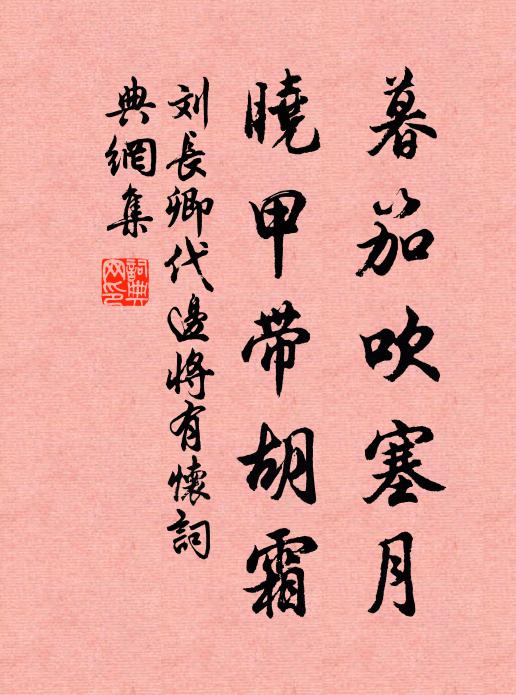 暮笳吹塞月
曉甲帶胡霜
刘長卿代邊將有懷詞
典網集
詞典網印